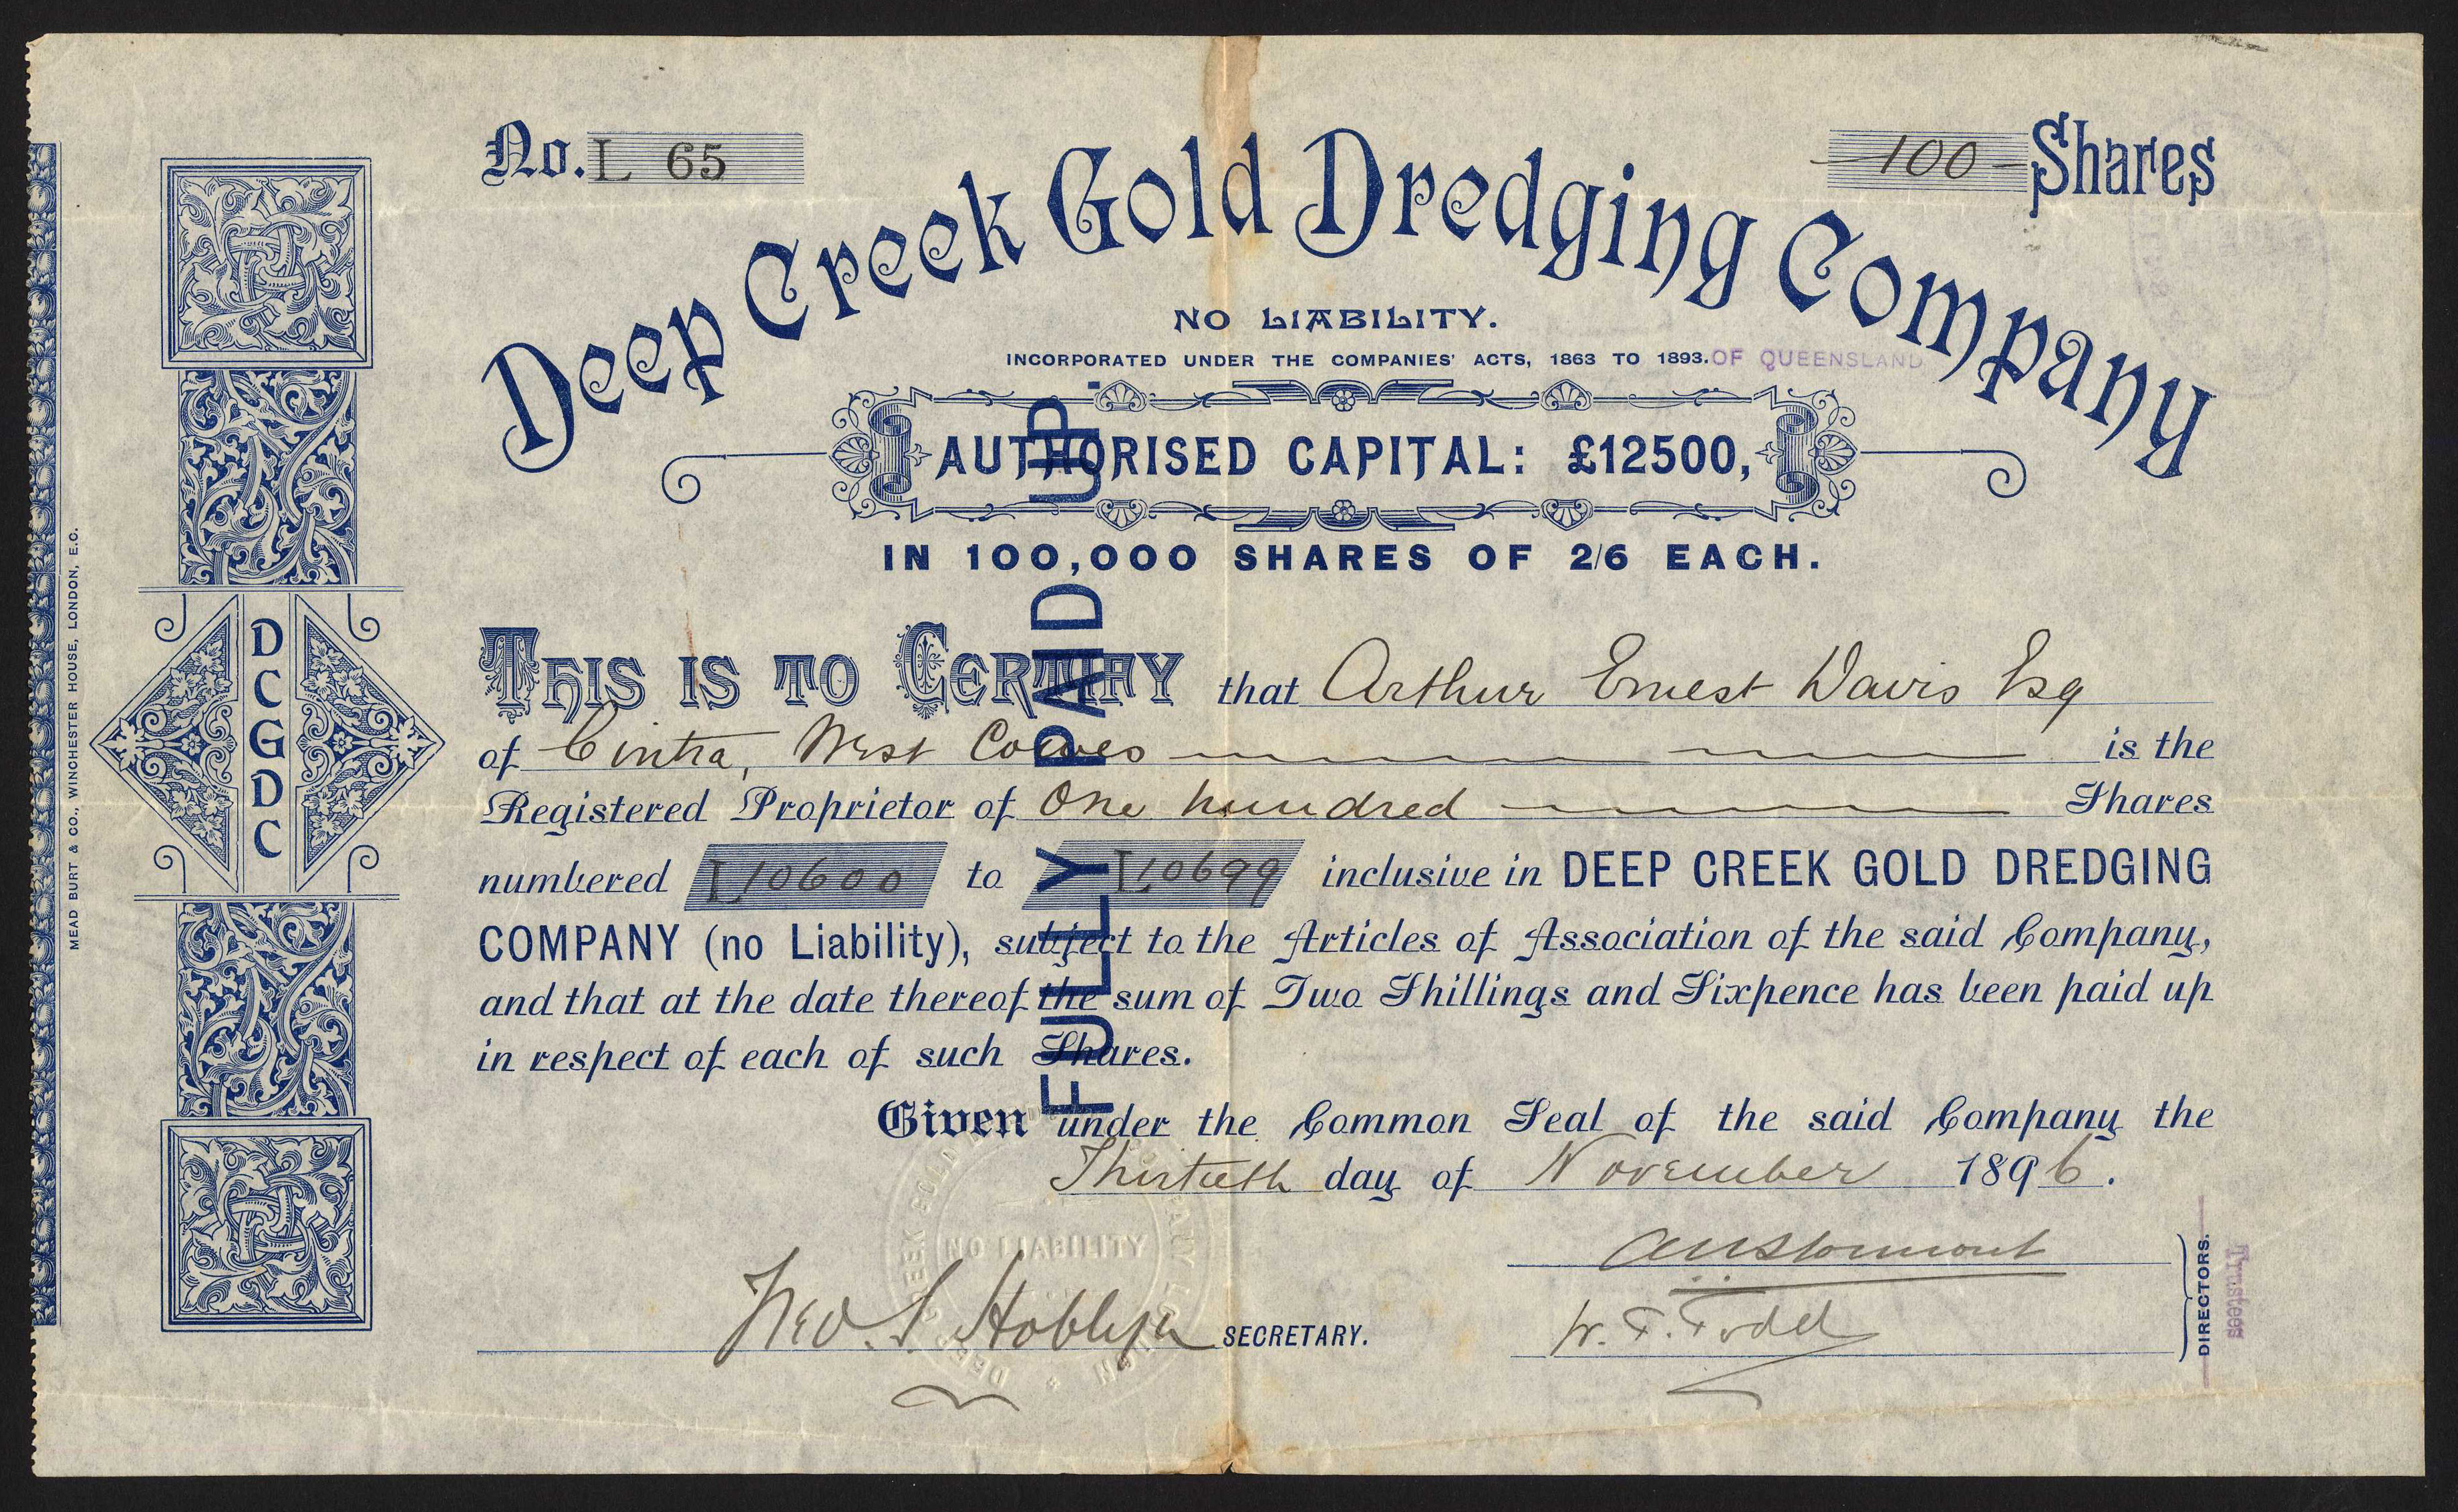 No. L 65
100 Shares
Deep Creek Gold Dredging Company
NO LIABILITY.
INCORPORATED UNDER THE COMPANIES' ACTS, 1863 TO 1893. OF QUEENSLAND
AUTHORISED CAPITAL: £12500,
IN 100,000 SHARES OF 2/6 EACH.
FULLY PAID UP.
THIS IS TO CERTIFY that Arthur Ernest Davis Esq
of Cintra, West Cowes is the
Registered Proprietor of One hundred Shares
numbered L10600 to L10699 inclusive in DEEP CREEK GOLD DREDGING
COMPANY (no Liability), subject to the Articles of Association of the said Company,
and that at the date thereof the sum of Two Shillings and Sixpence has been paid up
in respect of each of such Shares.
Given under the Common Seal of the said Company the
Thirtieth day of November 1896.
NO LIABILITY
Geo. S. Hoblyn SECRETARY.
W. F. Todd
DIRECTORS.
Trustees
DCGDC
MEAD BURT & CO., WINCHESTER HOUSE, LONDON, E.C.